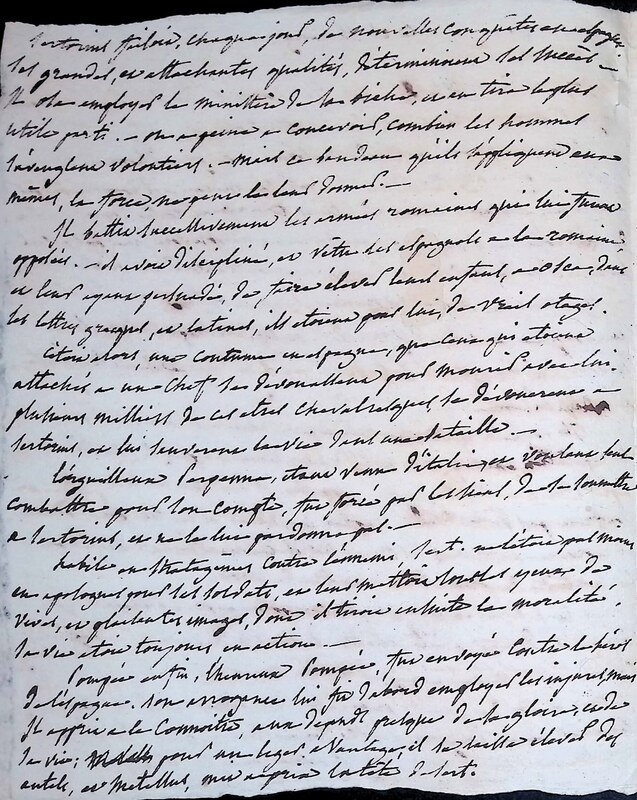 Sertorius faisoit, chaque jour, de nouvelles conquêtes en espagne.
ses grandes, et attachantes qualités, déterminerent ses succès —
Il osa employer le ministère de sa biche, et en tira le plus
utile parti. — on a peine a concevoir, combien les hommes
s'aveuglent volontiers. — mais ce bandeau qu'ils s'appliquent eux
mêmes, la force, ne peut le leur donner. —
Il battit successivement les armées romaines qui lui furent
opposées. — il avoit discipliné, et vêtu ses espagnols a la romaine
et leur ayant persuadé, de faire élever leurs enfants, a osca, dans
les lettres grecques, et latines, ils étoient pour lui, de vrais otages.
C'étoit alors, une coutume en espagne, que ceux qui étoient
attachés a un chef se dévouassent pour mourir avec lui.
plusieurs milliers de ces êtres chevaleresques, se dévouerent a
Sertorius, et lui sauverent la vie dans une bataille. —
L'orgueilleux Perpenna, étant venu d'italie, et voulant seul
combattre pour son compte, fut forcé par les siens, de se soumettre
a Sertorius, et ne le lui pardonna pas. —
habile en stratagèmes contre l'ennemi, Sert. ne l'étoit pas moins
en apologues pour ses soldats, et leur mettoit sous les yeux de
vives, et plaisantes images, dont il tiroit ensuite la moralité.
sa vie étoit toujours en action. —
Pompée enfin, l'heureux Pompée, fut envoyé contre le héros
de l'espagne. son arrogance lui fit d'abord employer les injures, mais
Il apprit a le connoître, aux dépends presque de sa gloire, et de
sa vie; pour un léger avantage, il se laissa élever des
autels, et Metellus, mit a prix la tête de Sert.